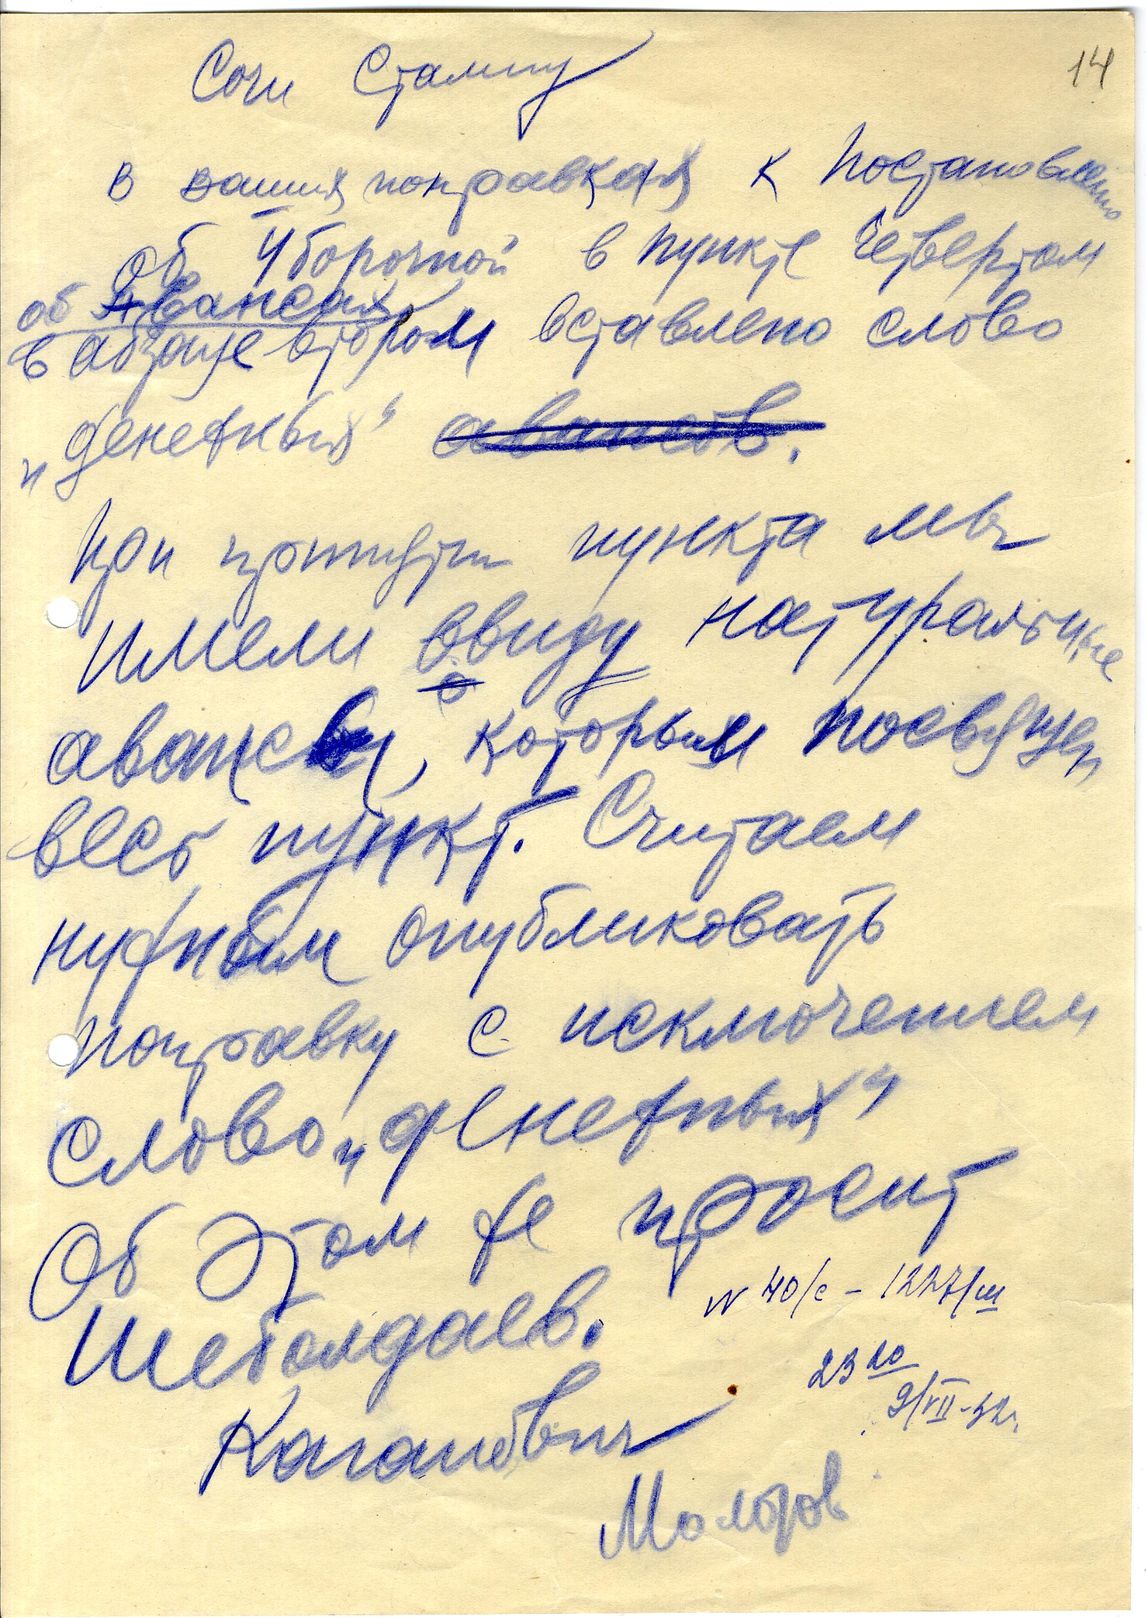 14
Сочи Сталину
В ваших поправках к Постановлению
Об Уборочной в пункте четвертом
об Авансах
в абзаце втором вставлено слово
„денежных“ авансов.
При принятии пункта мы
имели ввиду натуральные
авансы, которым посвящен
весь пункт. Считаем
нужным опубликовать
поправку с исключением
слово „денежных“
Об этом же просит
Шеболдаев.
N 40/с – 1227/ш
23 20
9/VII-32г.
Каганович
Молотов